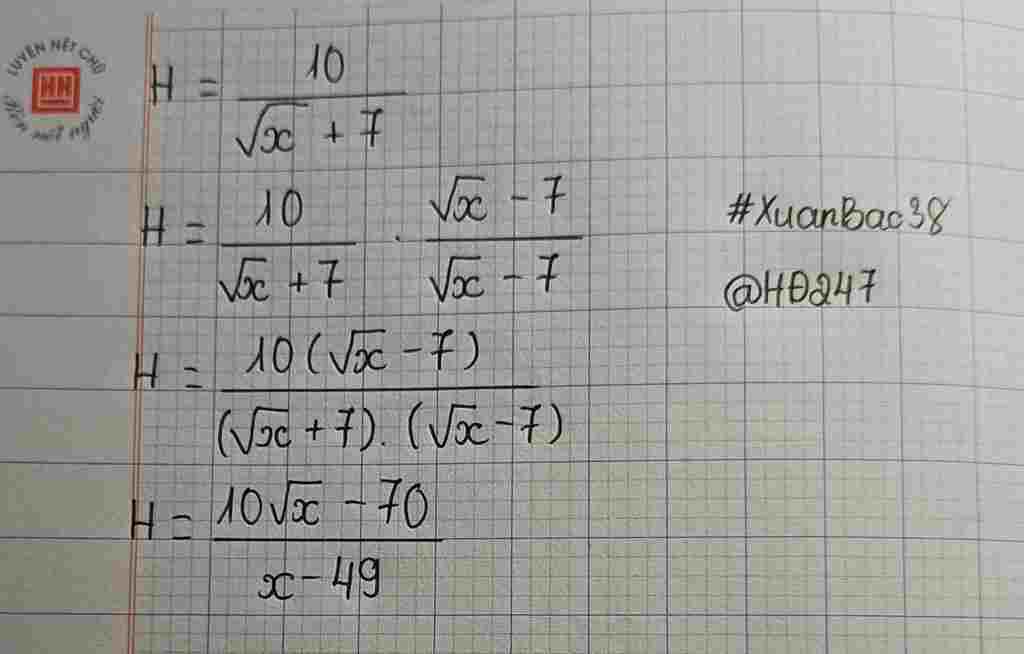 LUYỆN NÉT CHỮ
HH
Rèn nết người
H = 10 / (√x + 7)
H = 10 / (√x + 7) . (√x - 7) / (√x - 7)
#XuanBac38
@HĐ247
H = 10(√x - 7) / (√x + 7).(√x - 7)
H = (10√x - 70) / (x - 49)